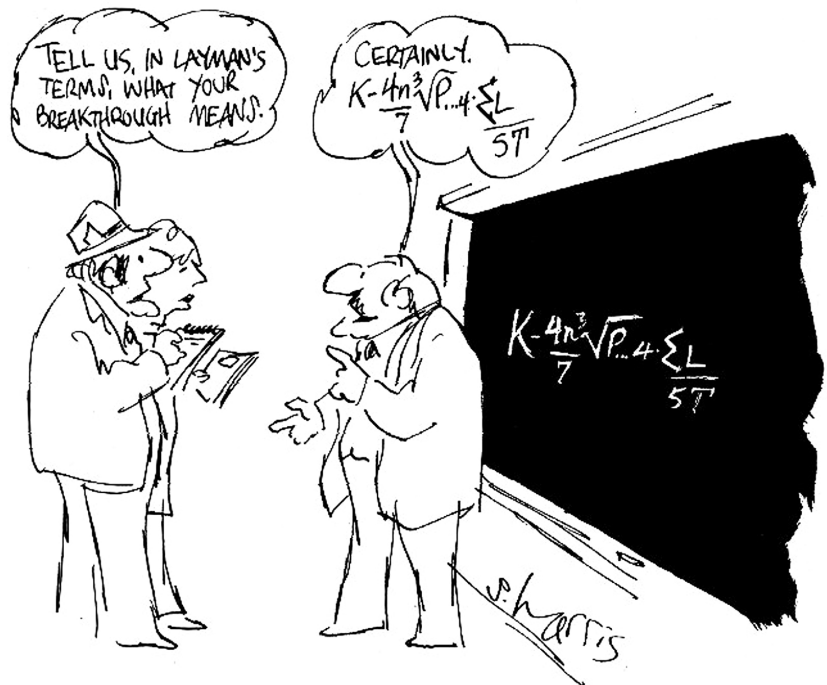 TELL US, IN LAYMAN'S
TERMS, WHAT YOUR
BREAKTHROUGH MEANS.
CERTAINLY.
K-4n³√P...4·ΣL
7
5T
K-4n³√P...4·ΣL
7
5T
s. harris